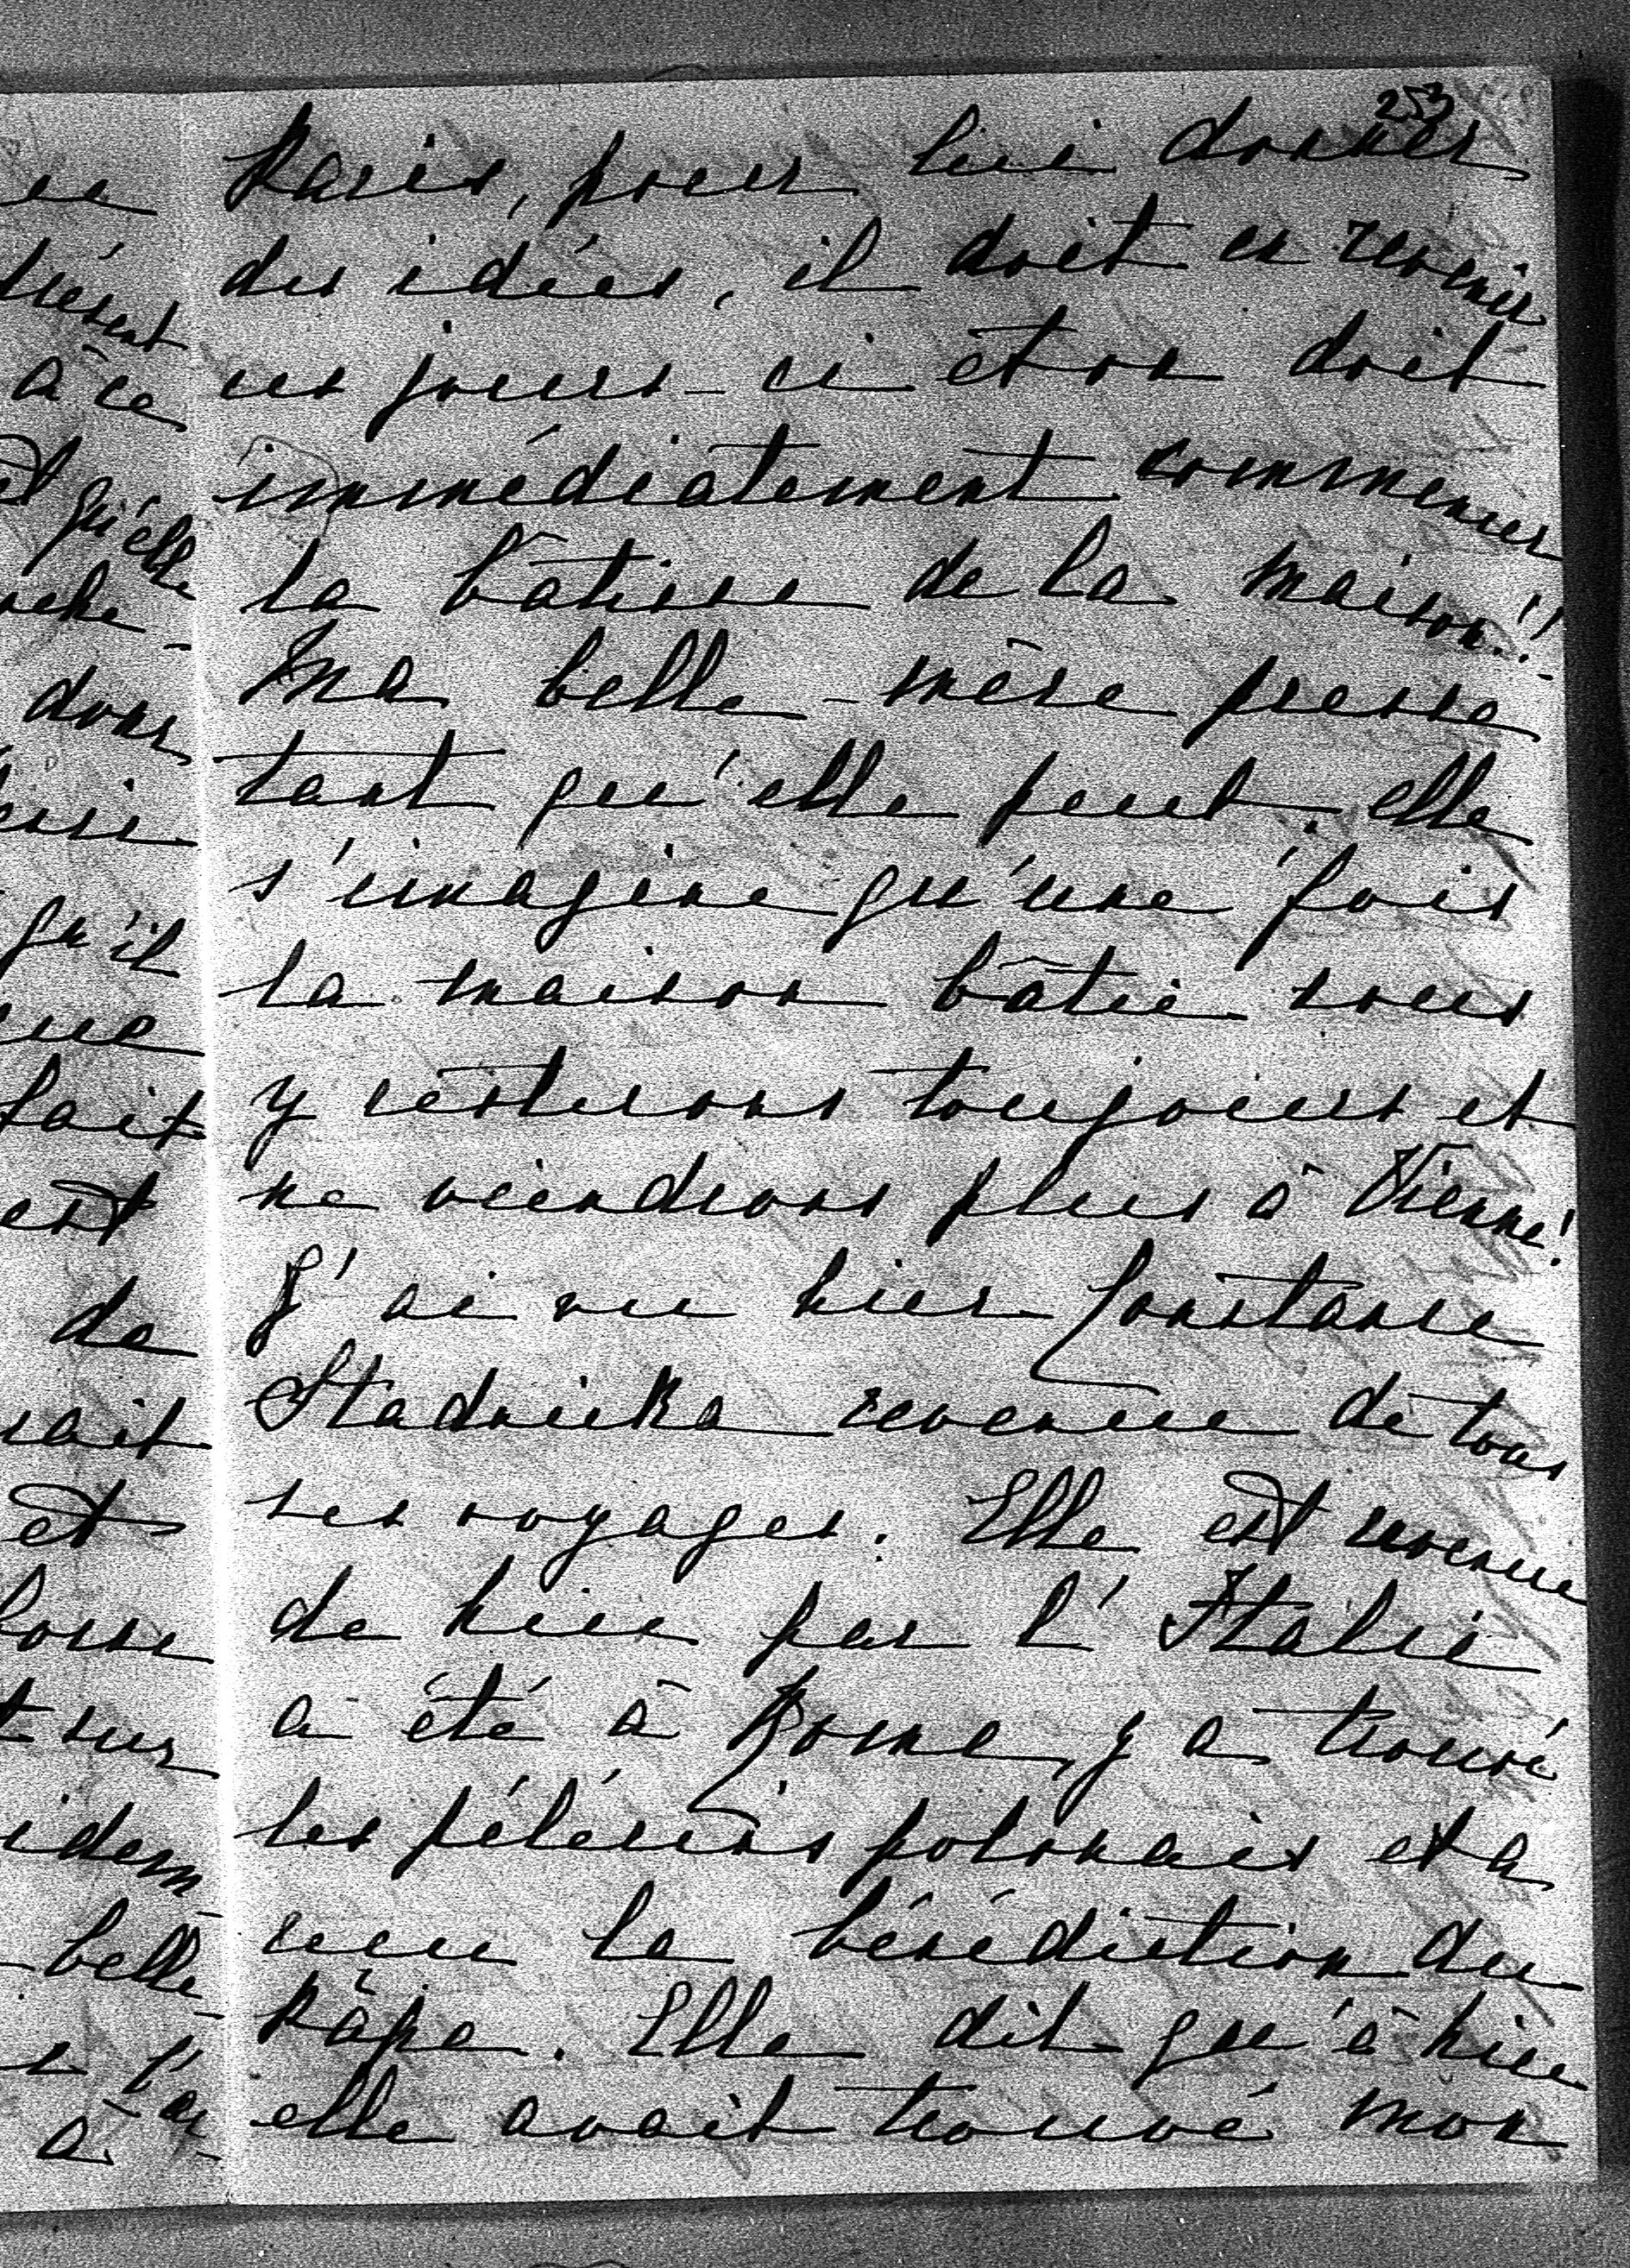 253
Paris, pour lui donner
des idées, il doit en revenir
ces jours-ci et on doit
immédiatement commencer
la bâtisse de la maison!!
Ma belle-mère presse
tant qu'elle peut, elle
s'imagine qu'une fois
la maison bâtie nous
y resterons toujours et
ne viendrons plus à Vienne!
J'ai vu hier Constance
Stadnicka revenue de tous
ses voyages. Elle est revenue
de Nice par l'Italie
a été à Rome, y a trouvé
les pélérins polonais et a
reçu la bénédiction du
Pâpe. Elle dit qu'à Nice
elle avait trouvé mon
à ce
et qu'elle
dons
qu'il
fait
est
de
et
sur
idem
belle-
à